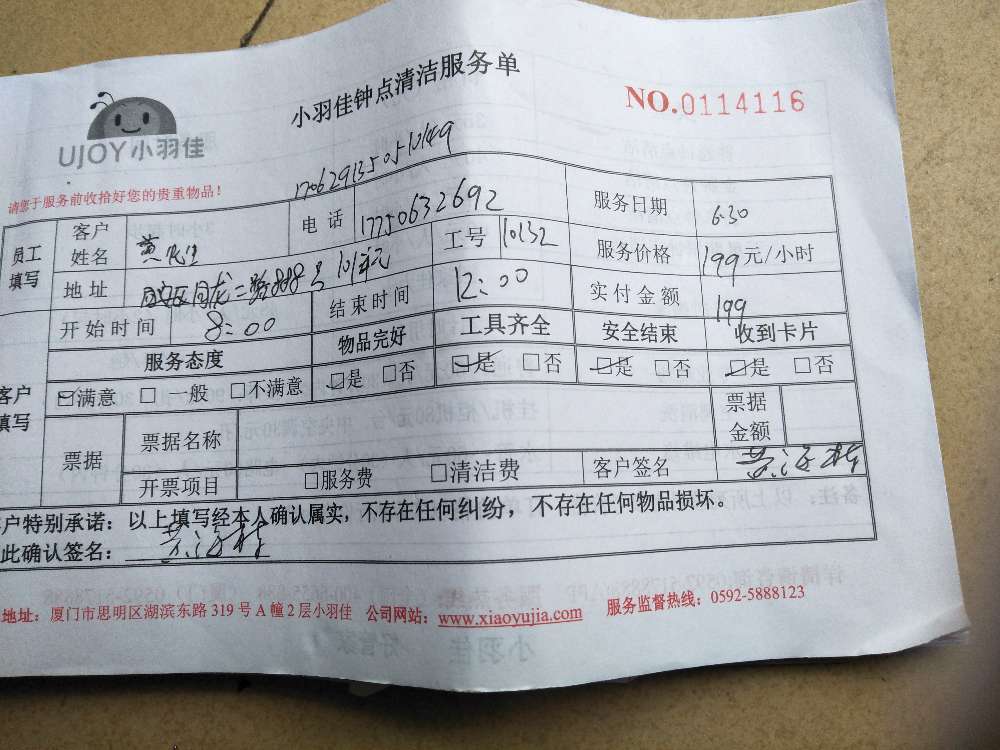 UJOY小羽佳
小羽佳钟点清洁服务单
NO.0114116
请您于服务前收拾好您的贵重物品！
员工填写
客户姓名
电话 17750632692
服务日期 6.30
地址 同龙二路888号101单元
工号 10132
服务价格 199元/小时
开始时间 8:00
结束时间 12:00
实付金额 199
服务态度 物品完好 工具齐全 安全结束 收到卡片
客户填写
☑满意 □一般 □不满意 ☑是 □否 ☑是 □否 ☑是 □否 ☑是 □否
票据 票据名称 票据金额
开票项目 □服务费 □清洁费 客户签名
客户特别承诺：以上填写经本人确认属实，不存在任何纠纷，不存在任何物品损坏。
此确认签名：
地址：厦门市思明区湖滨东路319号A幢2层小羽佳 公司网站：www.xiaoyujia.com 服务监督热线：0592-5888123